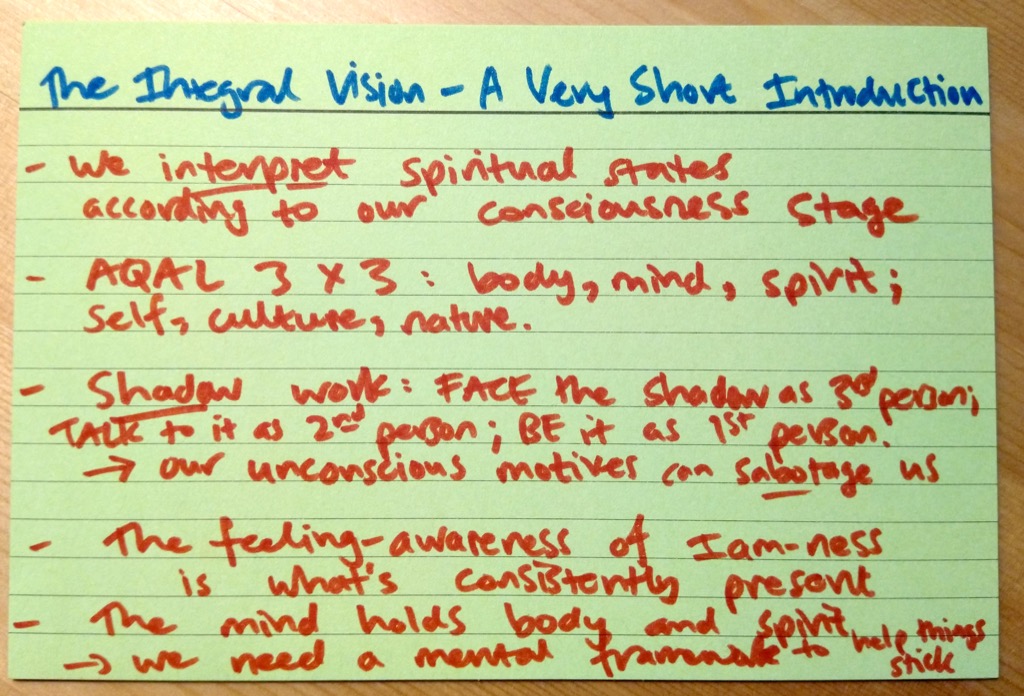 The Integral Vision - A Very Short Introduction
- We interpret spiritual states
according to our consciousness stage
- AQAL 3 x 3 : body, mind, spirit;
self, culture, nature.
- Shadow work: FACE the shadow as 3rd person;
TALK to it as 2nd person; BE it as 1st person.
→ our unconscious motives can sabotage us
- The feeling-awareness of I am-ness
is what's consistently present
- The mind holds body and spirit
→ we need a mental framework to help things
stick